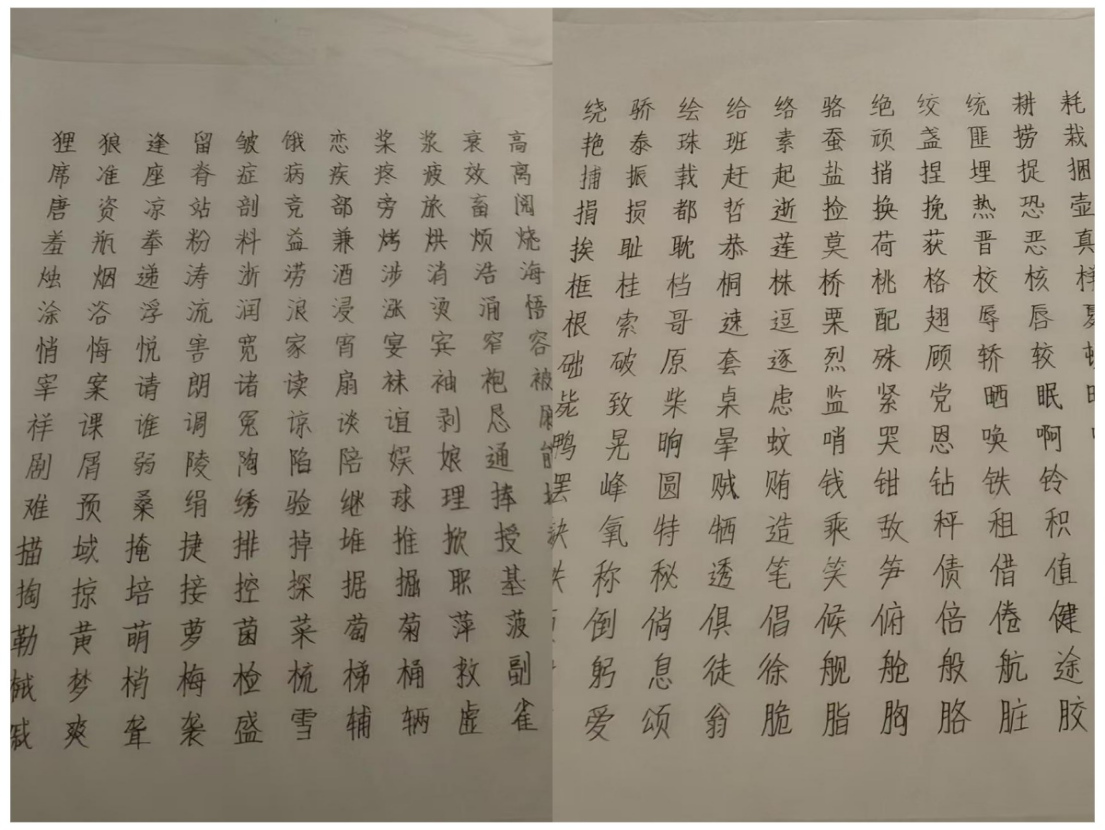 狸 狼 逢 留 皱 饿 恋 桨 浆 衰 高
席 准 座 脊 症 病 疾 疼 疲 效 离
唐 资 凉 站 剖 竞 部 旁 旅 畜 阅
羞 瓶 拳 粉 料 益 兼 烤 烘 烦 烧
烛 烟 递 涛 浙 涝 酒 涉 消 浩 海
涂 浴 浮 流 润 浪 浸 涨 烫 涌 悟
悄 悔 悦 害 宽 家 宵 宴 宾 窄 容
宰 案 请 朗 诸 读 扇 袜 袖 袍 被
祥 课 谁 调 冤 谅 谈 谊 剥 恳 展
剧 屑 弱 陵 陶 陷 陪 娱 娘 通 能
难 预 桑 绢 绣 验 继 球 理 捧
描 域 掩 捷 排 掉 堆 推 掀 授
掏 掠 培 接 控 探 据 掘 职 基
勒 黄 萌 萝 菌 菜 萄 菊 萍 菠
械 梦 梢 梅 检 梳 梯 桶 救 副
戚 爽 聋 袭 盛 雪 辅 辆 虚 雀
绕 骄 绘 给 络 骆 绝 绞 统 耕 耗
艳 泰 珠 班 素 蚕 顽 盏 匪 捞 栽
捕 振 载 赶 起 盐 捎 捏 埋 捉 捆
捐 损 都 哲 逝 捡 换 挽 热 恐 壶
挨 耻 耽 恭 莲 莫 荷 获 晋 恶 真
框 桂 档 桐 株 桥 桃 格 校 核 样
根 索 哥 速 逗 栗 配 翅 辱 唇 夏
础 破 原 套 逐 烈 殊 顾 轿 较 顿
毙 致 柴 桌 虑 监 紧 党 晒 眠
鸭 晃 晌 晕 蚊 哨 哭 恩 唤 啊
罢 峰 圆 贼 贿 钱 钳 钻 铁 铃
缺 氧 特 牺 造 乘 敌 秤 租 积
称 秘 透 笔 笑 笋 债 借 值
倒 倘 俱 倡 候 俯 倍 倦 健
躬 息 徒 徐 舰 舱 般 航 途
爱 颂 翁 脆 脂 胸 胳 脏 胶